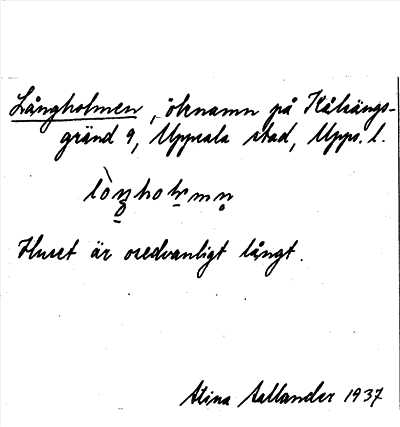 Långholmen, öknamn på Kålsängs-
gränd 9, Uppsala stad, Upps. l.
Huset är osedvanligt långt.
Stina Sallander 1937